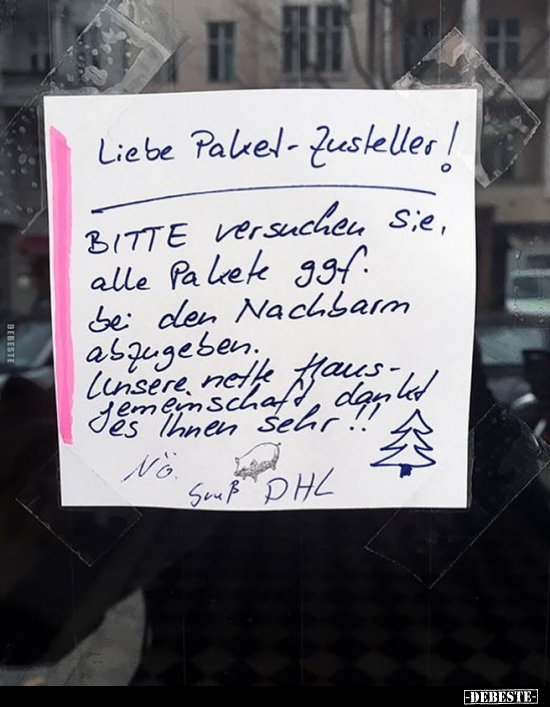 Liebe Paket-Zusteller!
BITTE versuchen Sie,
alle Pakete ggf.
bei den Nachbarn
abzugeben.
Unsere nette Haus-
gemeinschaft dankt
es Ihnen sehr!!
Nö.
Gruß DHL
DEBESTE
-DEBESTE-